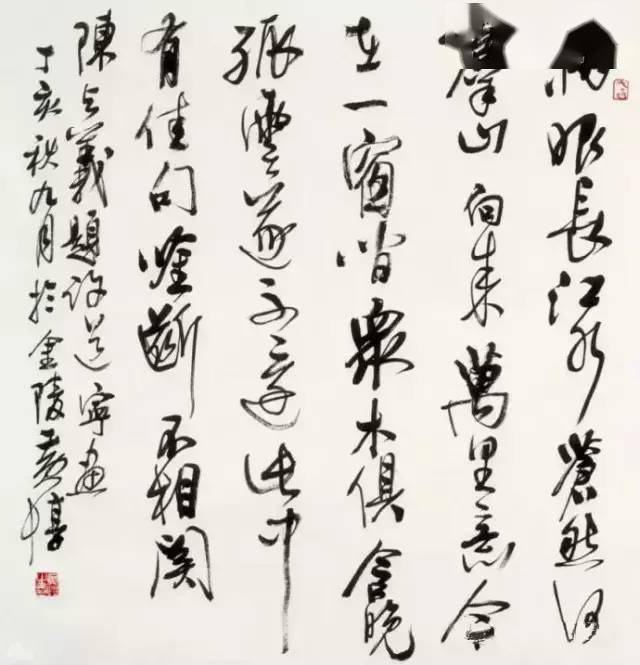 眼長江水蒼然何
羣山向来萬里意今
在一窗間眾木俱含晚
孤雲遂不還此中
有佳句唫斷不相関
陳与義題許道寧畫
丁亥秋九月於金陵黄惇